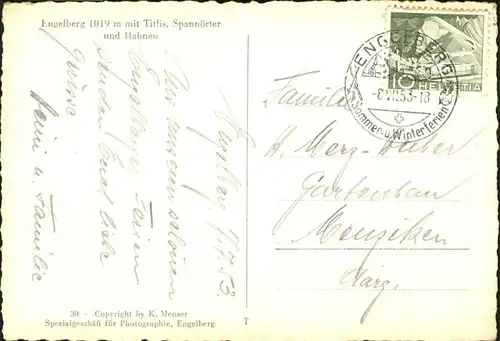 Engelberg 1019 m mit Titlis, Spannörter
und Hahnen
ENGELBERG
-8.VII.53-18
Sommer- u. Winterferien
10
HELVETIA
Engelberg 7.7.53.
Von unseren schönen
Engelberg Ferien
senden Euch liebe
Grüsse
u. Familie
Familie
H. Merz-Huber
Gartenbau
Menziken
Aarg.
39 · Copyright by K. Meuser
Spezialgeschäft für Photographie, Engelberg
T